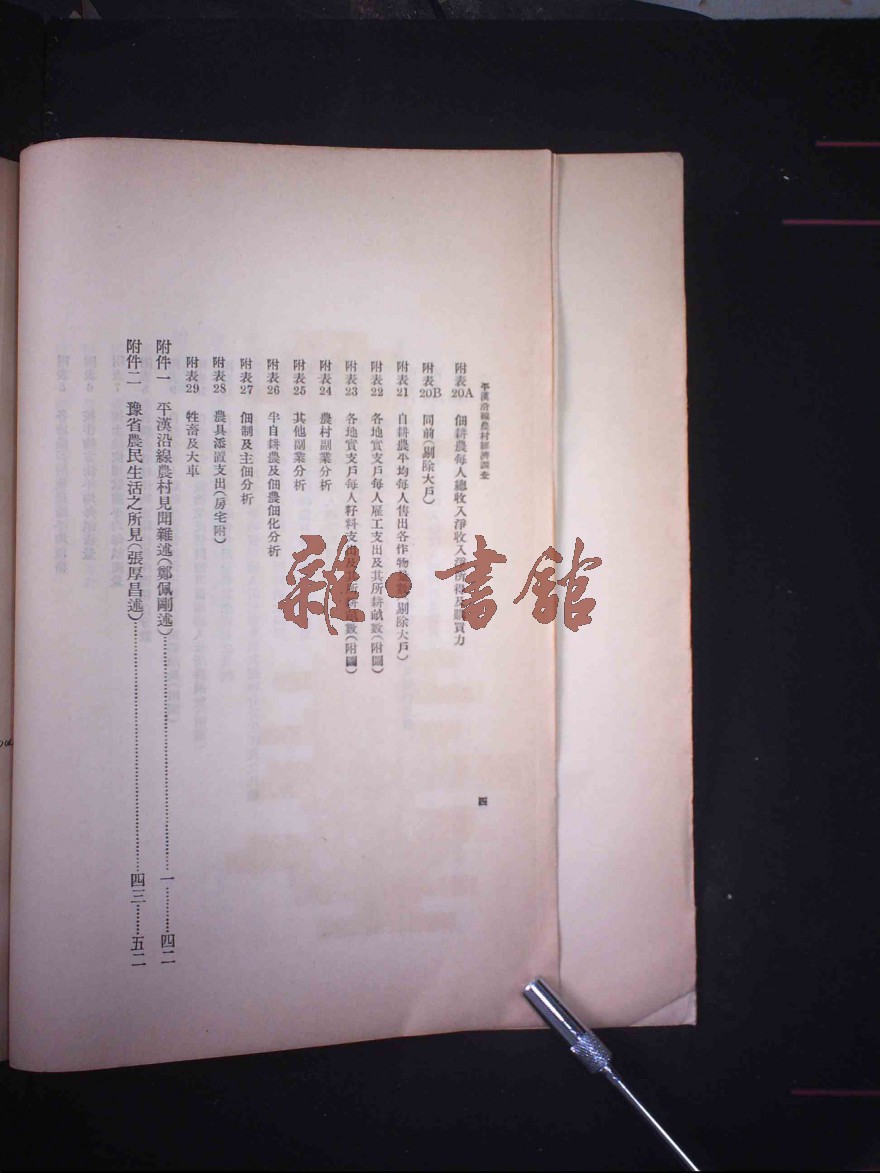 平漢沿線農村經濟調查
四
附表20A 佃耕農每人總收入淨收入淨所得及購買力
附表20B 同前(剔除大戶)
附表21 自耕農平均每人售出各作物 剔除大戶)
附表22 各地實支戶每人雇工支出及其所耕畝數(附圖)
附表23 各地實支戶每人籽料支出及其所耕畝數(附圖)
附表24 農村副業分析
附表25 其他副業分析
附表26 半自耕農及佃農佃化分析
附表27 佃制及主佃分析
附表28 農具添置支出(房宅附)
附表29 牲畜及大車
附件一 平漢沿線農村見聞雜述(鄭佩剛述)……一……四二
附件二 豫省農民生活之所見(張厚昌述)……四三……五二
雜·書館